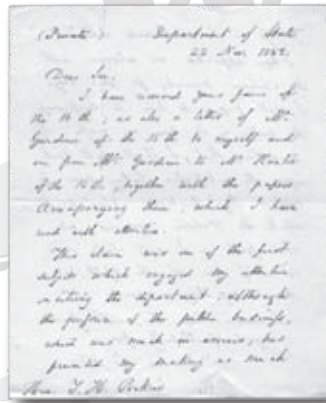 (Private) Department of State
22 Nov. 1842.
Dear Sir,
I have received your favor of
the 16th, as also a letter of Mr
Gardiner of the 15th to myself and
one from Mr Gardiner to Mr
of the 15th, together with the papers
accompanying them, which I have
read with attention.
This claim was one of the first
subjects which engaged my attention
on entering the department; although
the pressure of the public business,
which was much in arrears, has
prevented my making as much
Hon. T. H. Perkins